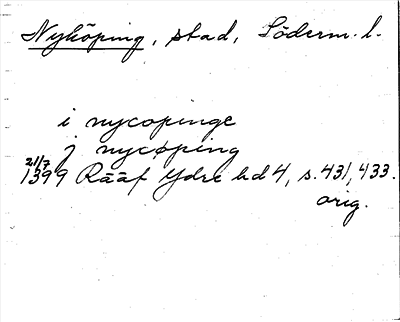 Nyköping, stad, Söderm. l.
i nycopinge
j nycøping
21/7
1399 Rääf Ydre bd 4, s. 431, 433.
orig.